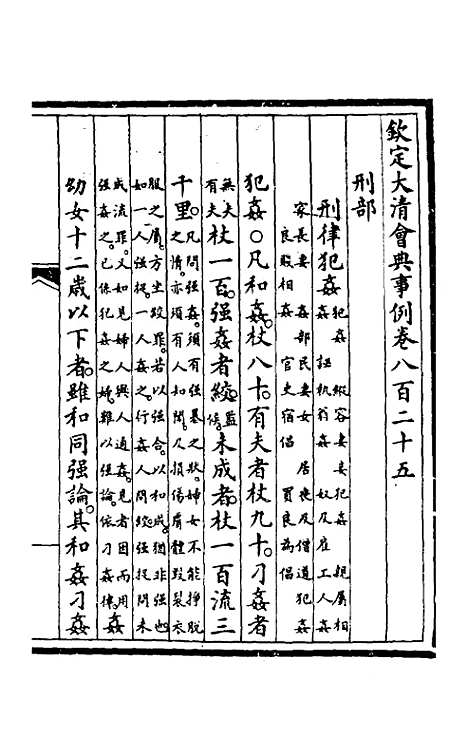 欽定大清會典事例卷八百二十五
刑部
刑律犯姦 犯姦 縱容妻妾犯姦 親屬相
姦 誣執翁姦 奴及雇工人姦
家長妻 姦部民妻女 居喪及僧道犯姦
良賤相姦 官吏宿倡 買良為倡
犯姦○凡和姦杖八十。有夫者杖九十。刁姦者
無夫有夫杖一百。強姦者絞。監候。未成者。杖一百流三
千里。凡問強姦。須有強暴之狀。婦女不能掙脫
之情。亦須有人知聞。及損傷膚體。毀裂衣
服之屬。方坐絞罪。若以強合。以和成。猶非強也。
如一人強捉。一人姦之。行姦人問絞。強捉問未
成流罪。又如見婦人與人通姦。見者因而用
強姦之。已係犯姦之婦。難以強論。依刁姦律。姦
幼女十二歲以下者。雖和同強論。其和姦刁姦